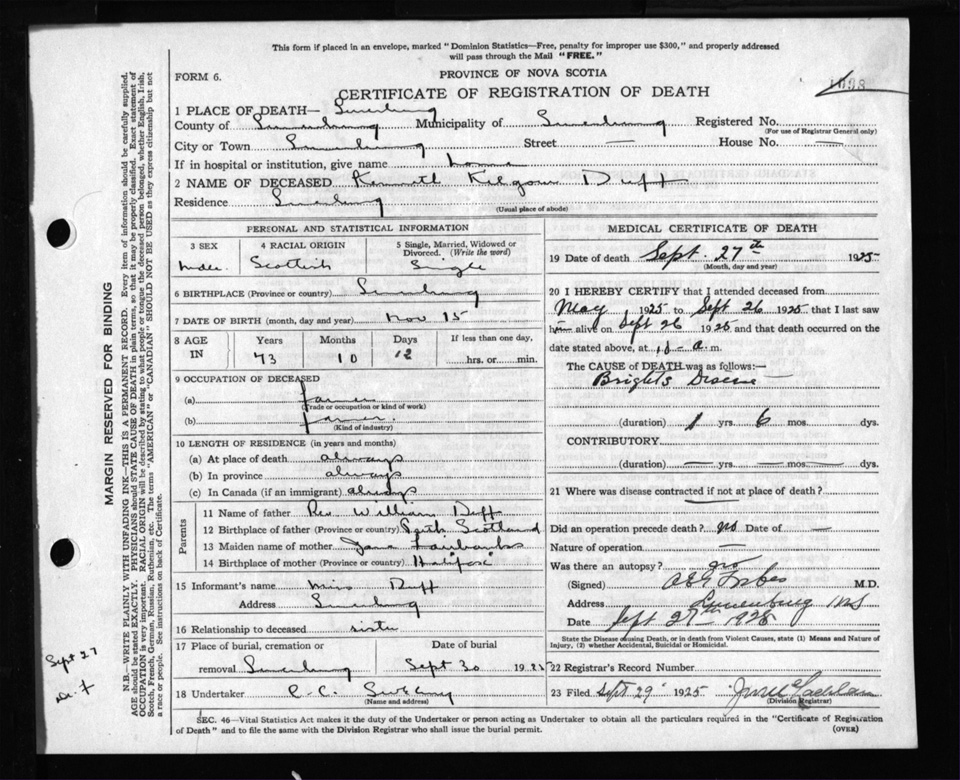 This form if placed in an envelope, marked "Dominion Statistics—Free, penalty for improper use $300," and properly addressed
will pass through the Mail "FREE."
FORM 6.
PROVINCE OF NOVA SCOTIA
CERTIFICATE OF REGISTRATION OF DEATH
1 PLACE OF DEATH— Lunenburg
County of Lunenburg Municipality of Lunenburg Registered No.
(For use of Registrar General only)
City or Town Lunenburg Street — House No. —
If in hospital or institution, give name home
2 NAME OF DECEASED Kenneth Kilgour Duff
Residence Lunenburg
(Usual place of abode)
PERSONAL AND STATISTICAL INFORMATION
3 SEX 4 RACIAL ORIGIN 5 Single, Married, Widowed or
Divorced. (Write the word)
male Scottish Single
6 BIRTHPLACE (Province or country) Lunenburg
7 DATE OF BIRTH (month, day and year) Nov 15
8 AGE IN Years Months Days If less than one day,
73 10 12 hrs. or min.
9 OCCUPATION OF DECEASED
(a) farmer
(Trade or occupation or kind of work)
(b) farmer
(Kind of industry)
10 LENGTH OF RESIDENCE (in years and months)
(a) At place of death always
(b) In province always
(c) In Canada (if an immigrant) always
Parents
11 Name of father Rev. William Duff
12 Birthplace of father (Province or country) Perth Scotland
13 Maiden name of mother Jane Fairbanks
14 Birthplace of mother (Province or country) Halifax
15 Informant's name Miss Duff
Address Lunenburg
16 Relationship to deceased sister
17 Place of burial, cremation or Date of burial
removal Lunenburg Sept 30 1925
18 Undertaker C.C.
(Name and address)
MEDICAL CERTIFICATE OF DEATH
19 Date of death Sept. 27th 1925
(Month, day and year)
20 I HEREBY CERTIFY that I attended deceased from
May 1925 to Sept 26 1925 that I last saw
him alive on Sept 26 1925 and that death occurred on
the date stated above, at 10 - a. m.
The CAUSE of DEATH was as follows:—
Brights Disease
(duration) 1 yrs. 6 mos. dys.
CONTRIBUTORY
(duration) — yrs. — mos. — dys.
21 Where was disease contracted if not at place of death?
Did an operation precede death? no Date of —
Nature of operation —
Was there an autopsy? no
(Signed) Forbes M.D.
Address Lunenburg NS
Date Sept 27th 1925
State the Disease causing Death, or in death from Violent Causes, state (1) Means and Nature of
Injury, (2) whether Accidental, Suicidal or Homicidal.
22 Registrar's Record Number
23 Filed Sept. 29 1925
(Division Registrar)
SEC. 46—Vital Statistics Act makes it the duty of the Undertaker or person acting as Undertaker to obtain all the particulars required in the "Certificate of Registration
of Death" and to file the same with the Division Registrar who shall issue the burial permit. (OVER)
MARGIN RESERVED FOR BINDING
N.B.—WRITE PLAINLY WITH UNFADING INK—THIS IS A PERMANENT RECORD. Every item of information should be carefully supplied.
AGE should be stated EXACTLY. PHYSICIANS should STATE CAUSE OF DEATH in plain terms, so that it may be properly classified. Exact statement of
OCCUPATION is very important. RACIAL ORIGIN will be described by stating to what people or tongue the deceased person belonged, whether English, Irish,
Scotch, French, German, Russian, Ruthenian, etc. The terms "AMERICAN" or "CANADIAN" SHOULD NOT BE USED as they express citizenship but not
a race or people. See instructions on back of Certificate.
Sept 27